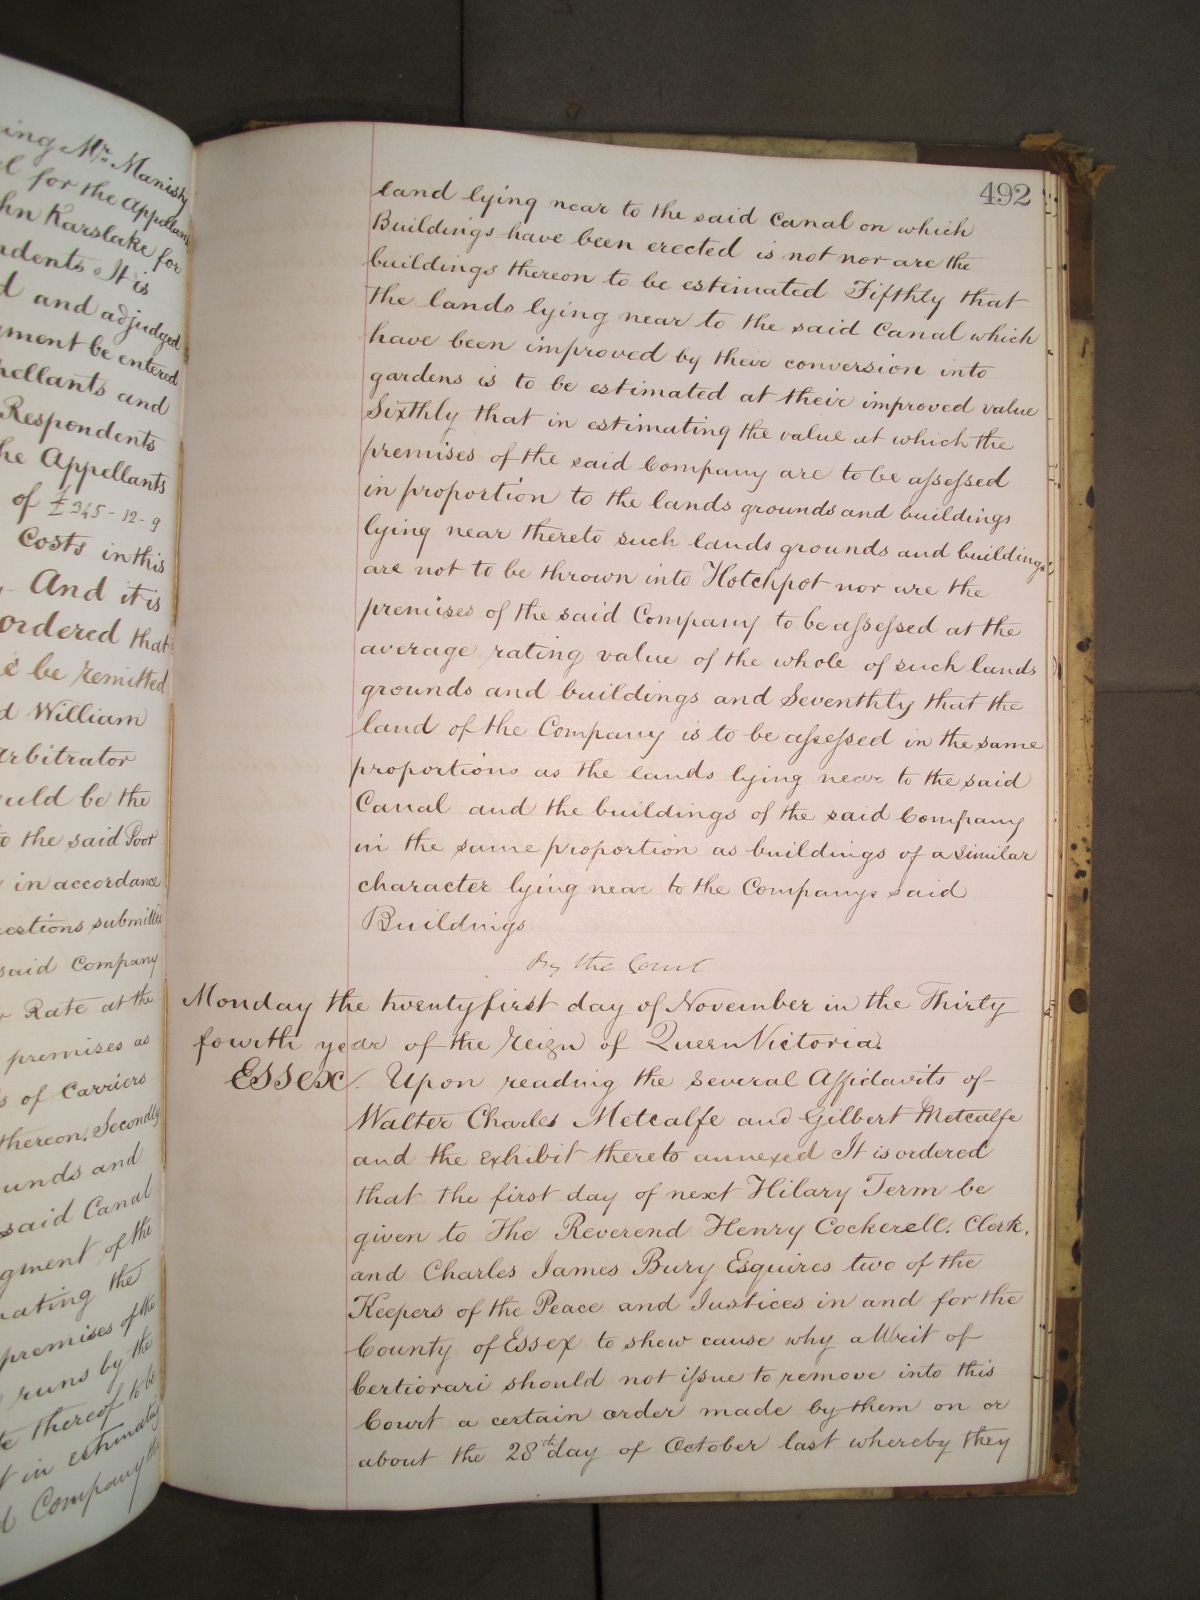 ing Mr. Manisty
l for the Appellan
hn Karslake for
ndents It is
d and adjudged
gment be entered
pellants and
Respondents
he Appellants
of £245-12-9
Costs in this
And it is
ordered that
e be remitted
d William
arbitrator
ould be the
to the said Poor
in accordance
estions submitted
said Company
r Rate at the
premises as
s of Carriers
thereon, Secondly
unds and
said Canal
gment of the
mating the
premises of the
runs by the
te thereof to be
t in estimating
d Company the
492
land lying near to the said Canal on which
Buildings have been erected is not nor are the
buildings thereon to be estimated Fifthly that
the lands lying near to the said Canal which
have been improved by their conversion into
gardens is to be estimated at their improved value
Sixthly that in estimating the value at which the
premises of the said Company are to be assessed
in proportion to the lands grounds and buildings
lying near thereto such lands grounds and buildings
are not to be thrown into Hotchpot nor are the
premises of the said Company to be assessed at the
average rating value of the whole of such lands
grounds and buildings and Seventhly that the
land of the Company is to be assessed in the same
proportions as the lands lying near to the said
Canal and the buildings of the said Company
in the same proportion as buildings of a similar
character lying near to the Companys said
Buildings.
By the Court
Monday the twentyfirst day of November in the Thirty
fourth year of the Reign of Queen Victoria.
Essex. Upon reading the several Affidavits of
Walter Charles Metcalfe and Gilbert Metcalfe
and the exhibit thereto annexed It is ordered
that the first day of next Hilary Term be
given to The Reverend Henry Cockerell. Clerk,
and Charles James Bury Esquires two of the
Keepers of the Peace and Justices in and for the
County of Essex to shew cause why a Writ of
Certiorari should not issue to remove into this
Court a certain order made by them on or
about the 28th day of October last whereby they